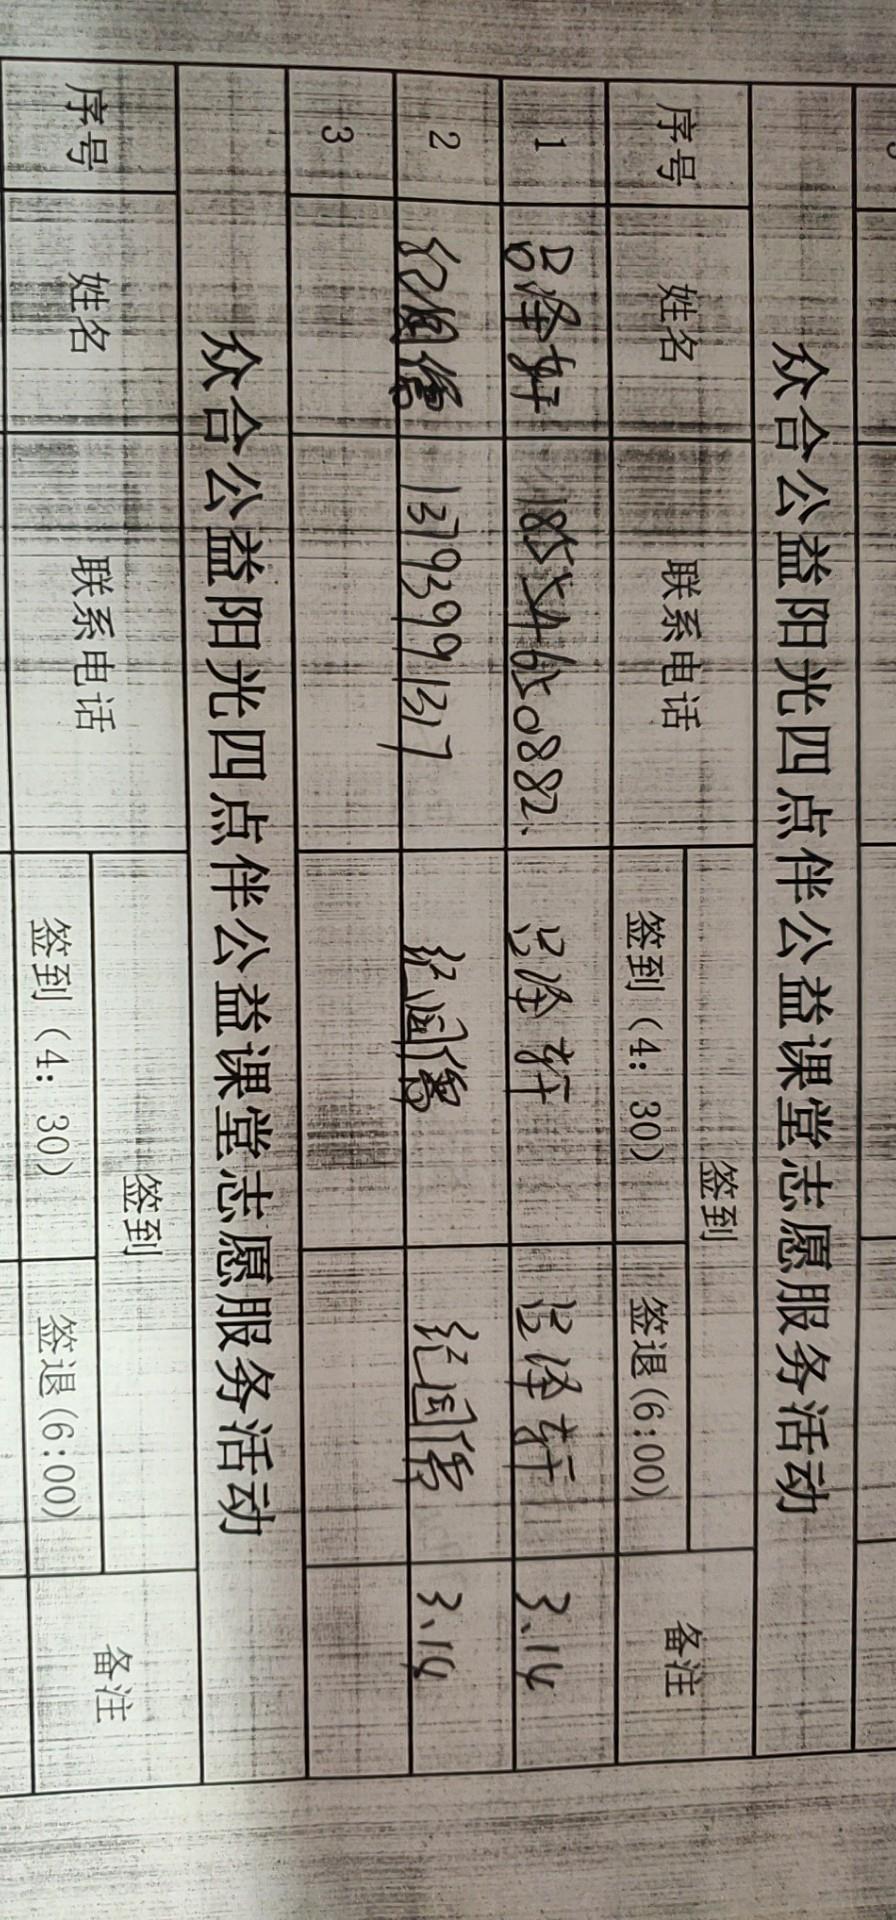 众合公益阳光四点伴公益课堂志愿服务活动
序号 姓名 联系电话 签到 备注
签到（4：30） 签退(6:00)
1 吕泽轩 18554650882 吕泽轩 吕泽轩 3.14
2 13793991317 3.14
3
众合公益阳光四点伴公益课堂志愿服务活动
序号 姓名 联系电话 签到 备注
签到（4：30） 签退(6:00)